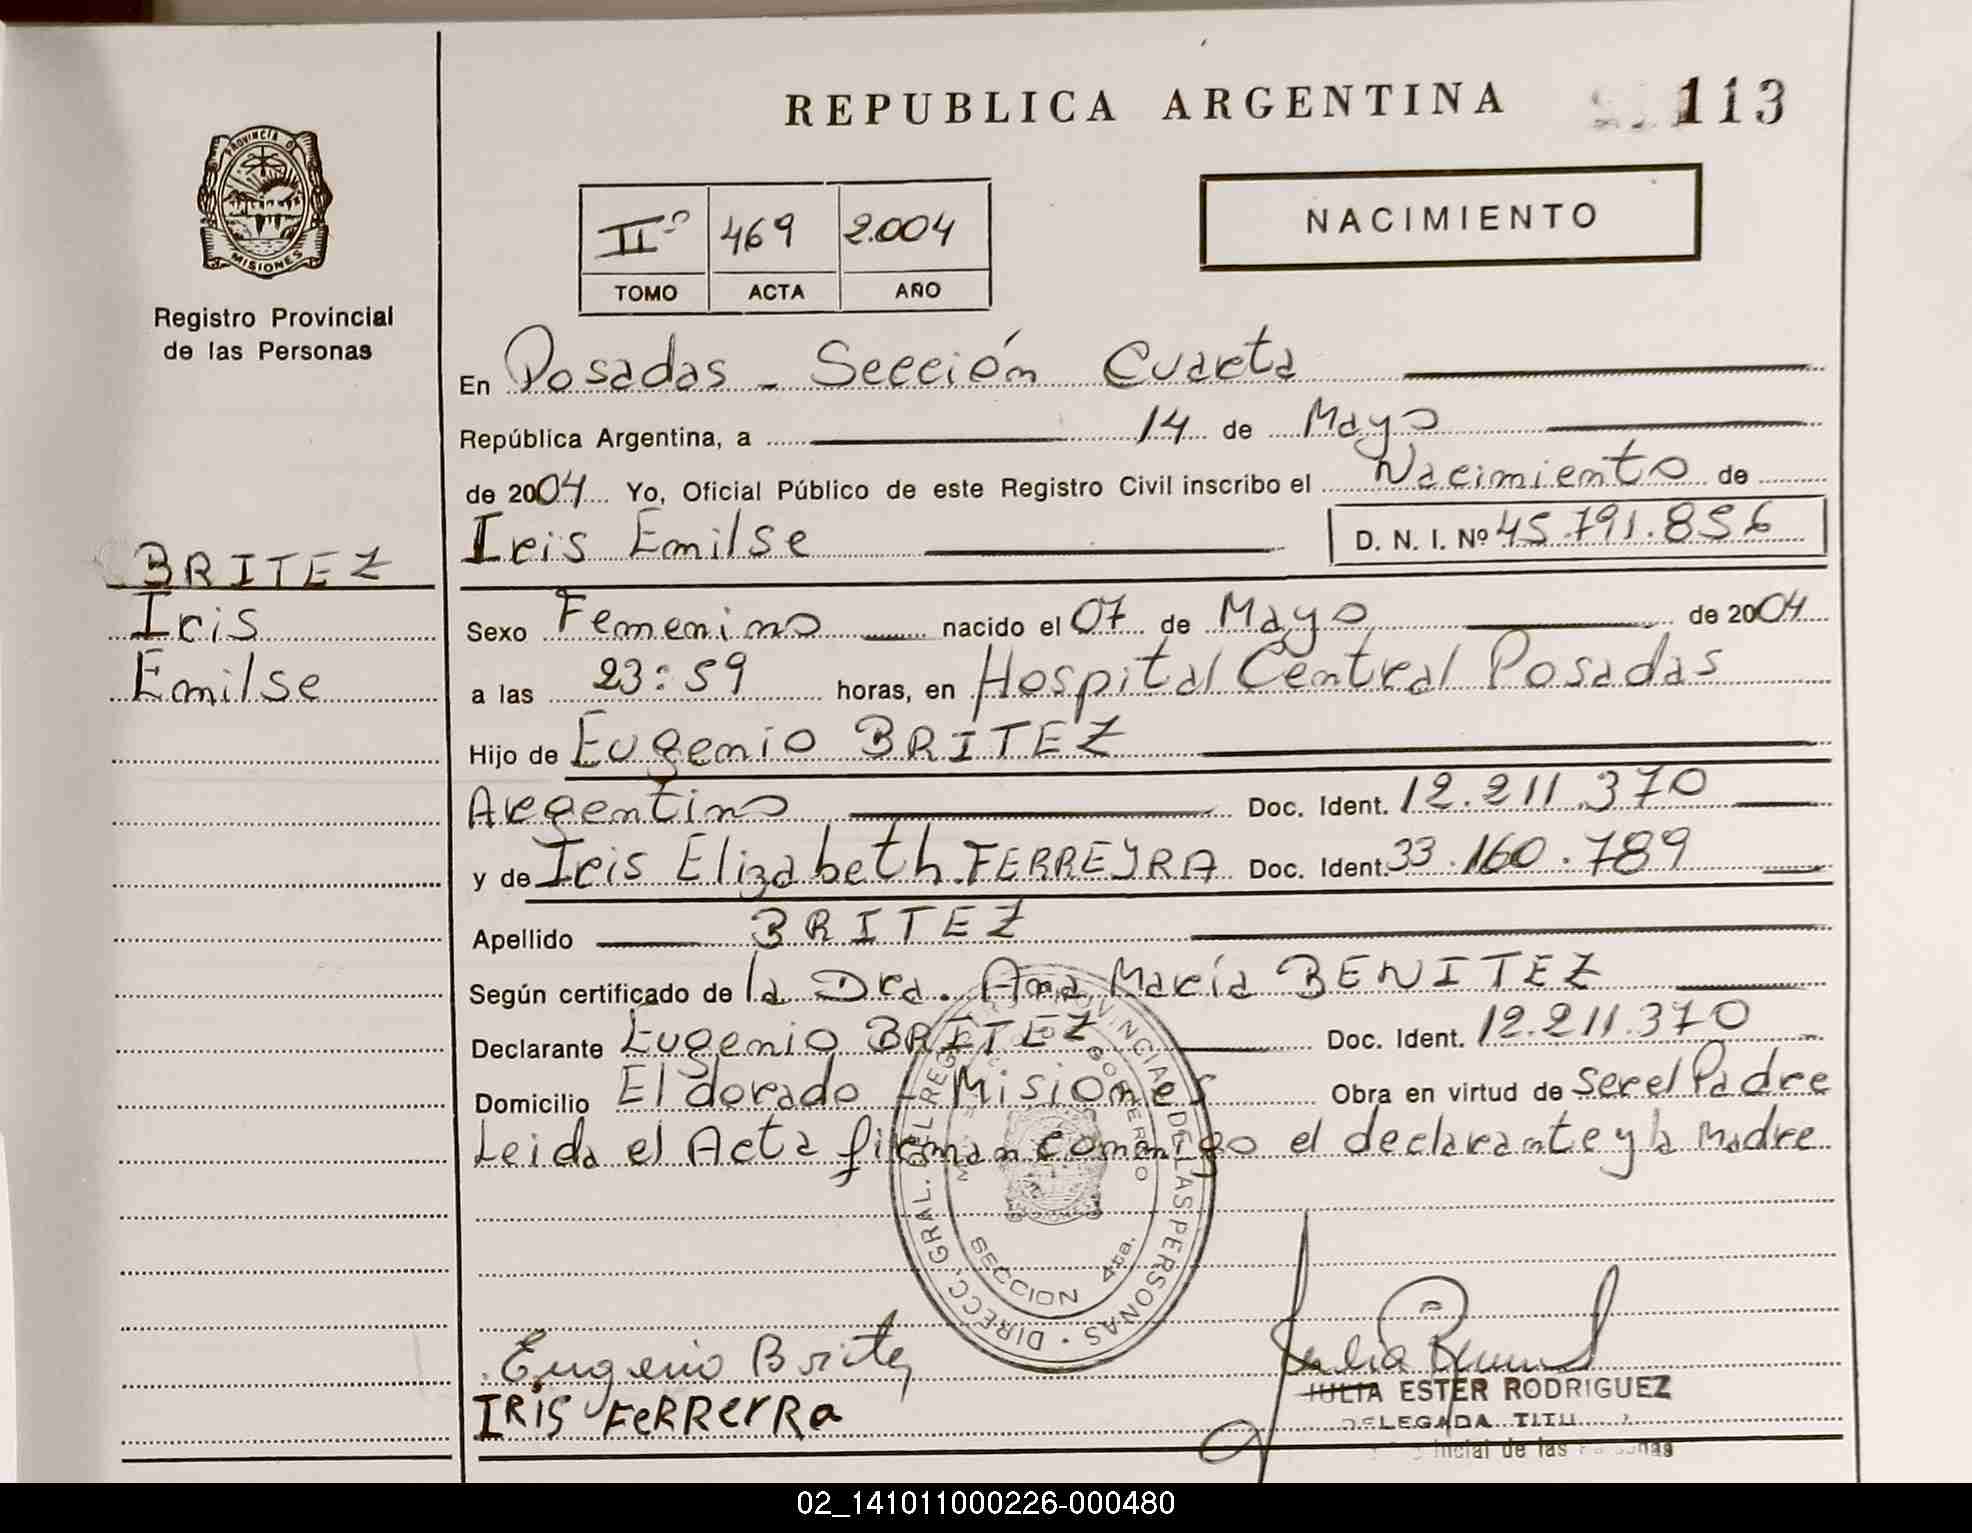 REPUBLICA ARGENTINA
113
PROVINCIA DE
MISIONES
Registro Provincial
de las Personas
IIº 469 2.004
TOMO ACTA AÑO
NACIMIENTO
En Posadas - Sección Cuarta
República Argentina, a 14 de Mayo
de 2004 Yo, Oficial Público de este Registro Civil inscribo el Nacimiento de
Iris Emilse D. N. I. Nº 45.791.856
BRITEZ
Iris
Emilse
Sexo Femenino nacido el 07 de Mayo de 2004
a las 23:59 horas, en Hospital Central Posadas
Hijo de Eugenio BRITEZ
Argentino Doc. Ident. 12.211.370
y de Iris Elizabeth FERREYRA Doc. Ident. 33.160.789
Apellido BRITEZ
Según certificado de la Dra. Ana María BENITEZ
Declarante Eugenio BRITEZ Doc. Ident. 12.211.370
Domicilio Eldorado - Misiones Obra en virtud de Ser el Padre
Leida el Acta firman conmigo el declarante y la Madre
DIRECC. GRAL. DEL REG. PROVINCIAL DE LAS PERSONAS
GOBIERNO
SECCION 4ta.
Eugenio Britez
IRIS FeRRerRa
JULIA ESTER RODRIGUEZ
DELEGADA
de las
02_141011000226-000480